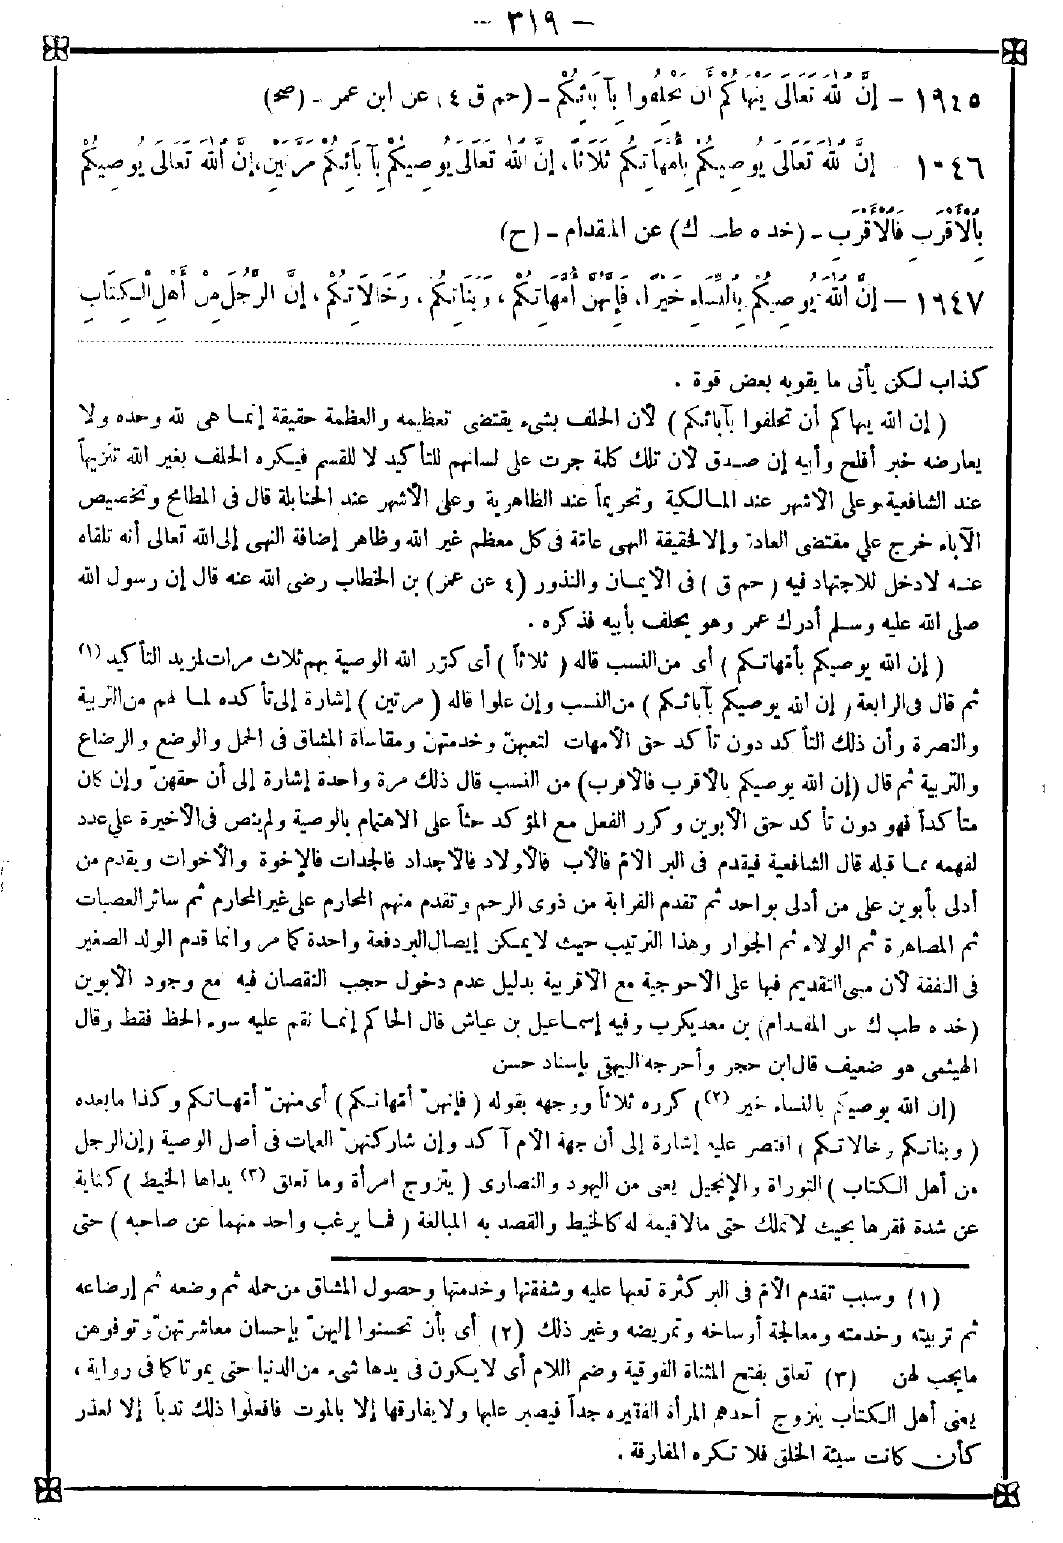 – ٣١٩ –
١٩٤٥ – إِنَّ اللَّهَ تَعَالَى يَنْهَاكُمْ أَن تَحْلِفُوا بِآبَائِكُمْ – (حم ق ٤) عن ابن عمر – (صح)
١٩٤٦ – إِنَّ اللَّهَ تَعَالَى يُوصِيكُمْ بِأُمَّهَاتِكُمْ ثَلَاثًا، إِنَّ اللَّهَ تَعَالَى يُوصِيكُمْ بِآبَائِكُمْ مَرَّتَيْنِ، إِنَّ اللَّهَ تَعَالَى يُوصِيكُمْ
بِالْأَقْرَبِ فَالْأَقْرَبِ – (خد ه طب ك) عن المقدام – (ح)
١٩٤٧ – إِنَّ اللَّهَ يُوصِيكُمْ بِالنِّسَاءِ خَيْرًا، فَإِنَّهُنَّ أُمَّهَاتُكُمْ، وَبَنَاتُكُمْ، وَخَالَاتُكُمْ، إِنَّ الرَّجُلَ مِنْ أَهْلِ الْكِتَابِ
كذاب لكن يأتى ما يقويه بعض قوة .
( إن الله ينهاكم أن تحلفوا بآبائكم ) لأن الحلف بشىء يقتضى تعظيمه والعظمة حقيقة إنما هى لله وحده ولا
يعارضه خبر أفلح وأبيه إن صدق لأن تلك كلمة جرت على لسانهم للتأكيد لا للقسم فيكره الحلف بغير الله تنزيهاً
عند الشافعية وعلى الأشهر عند المالكية وتحريماً عند الظاهرية وعلى الأشهر عند الحنابلة قال فى المطامح وتخصيص
الآباء خرج على مقتضى العادة وإلا فحقيقة النهى عامة فى كل معظم غير الله وظاهر إضافة النهى إلى الله تعالى أنه تلقاه
عنه لا دخل للاجتهاد فيه ( حم ق ) فى الأيمان والنذور (٤ عن عمر) بن الخطاب رضى الله عنه قال إن رسول الله
صلى الله عليه وسلم أدرك عمر وهو يحلف بأبيه فذكره .
( إن الله يوصيكم بأمّهاتكم ) أى من النسب قاله ( ثلاثاً ) أى كرّر الله الوصية بهم ثلاث مرات لمزيد التأكيد (١)
ثم قال فى الرابعة ( إن الله يوصيكم بآبائكم ) من النسب وإن علوا قاله ( مرتين ) إشارة إلى تأكده لما لهم من التربية
والنصرة وأن ذلك التأكد دون تأكد حق الأمهات لتعبهنّ وخدمتهن ومقاساة المشاق فى الحمل والوضع والرضاع
والتربية ثم قال (إن الله يوصيكم بالأقرب فالأقرب) من النسب قال ذلك مرة واحدة إشارة إلى أن حقهنّ وإن كان
متأكداً فهو دون تأكد حق الأبوين وكرر الفعل مع المؤكد حثاً على الاهتمام بالوصية ولم ينص فى الأخيرة على عدد
لفهمه مما قبله قال الشافعية فيقدم فى البر الأمّ فالأب فالأولاد فالأجداد فالجدات فالإخوة والأخوات ويقدم من
أدلى بأبوين على من أدلى بواحد ثم تقدم القرابة من ذوى الرحم وتقدم منهم المحارم على غير المحارم ثم سائر العصبات
ثم المصاهرة ثم الولاء ثم الجوار وهذا الترتيب حيث لا يمكن إيصال البر دفعة واحدة كما مر وإنما قدم الولد الصغير
فى النفقة لأن مبنى التقديم فيها على الأحوجية مع الأقربية بدليل عدم دخول حجب النقصان فيه مع وجود الأبوين
(خد ه طب ك عن المقدام) بن معديكرب وفيه إسماعيل بن عياش قال الحاكم إنما نقم عليه سوء الحفظ فقط وقال
الهيثمى هو ضعيف قال ابن حجر وأخرجه البيهقى بإسناد حسن
(إن الله يوصيكم بالنساء خير (٢)) كرره ثلاثاً ووجهه بقوله ( فإنهنّ أمّهاتكم ) أى منهنّ أمّهاتكم وكذا ما بعده
( وبناتكم وخالاتكم ) اقتصر عليه إشارة إلى أن جهة الأم آكد وإن شاركتهنّ العمات فى أصل الوصية (إن الرجل
من أهل الكتاب ) التوراة والإنجيل يعنى من اليهود والنصارى ( يتزوج امرأة وما تعلق (٣) يداها الخيط ) كناية
عن شدة فقرها بحيث لا تملك حتى مالا قيمة له كالخيط والقصد به المبالغة ( فما يرغب واحد منهما عن صاحبه ) حتى
(١) وسبب تقدم الأمّ فى البر كثرة تعبها عليه وشفقتها وخدمتها وحصول المشاق من حمله ثم وضعه ثم إرضاعه
ثم تربيته وخدمته ومعالجة أوساخه وتمريضه وغير ذلك (٢) أى بأن تحسنوا إليهنّ بإحسان معاشرتهنّ وتوفوهن
ما يجب لهن (٣) تعلق بفتح المثناة الفوقية وضم اللام أى لا يكون فى يدها شىء من الدنيا حتى يموتا كما فى رواية ،
يعنى أهل الكتاب يتزوج أحدهم المرأة الفقيرة جداً فيصبر عليها ولا يفارقها إلا بالموت فافعلوا ذلك ندباً إلا لعذر
كأن كانت سيئة الخلق فلا تكره المفارقة .